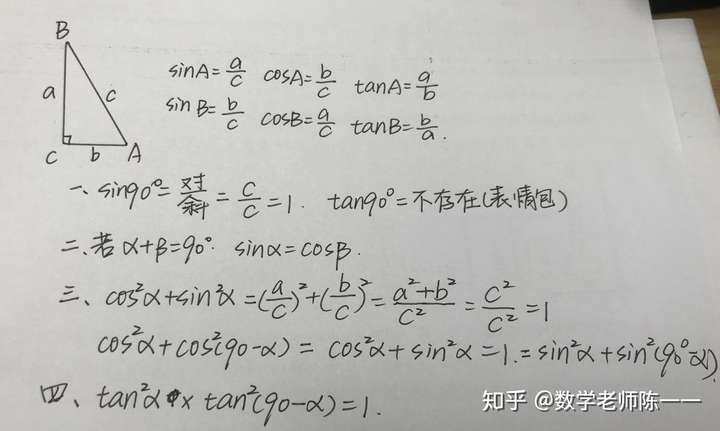 B
a
c
C
b
A
sinA=a/c cosA=b/c tanA=a/b
sinB=b/c cosB=a/c tanB=b/a.
一、sin90°=对/斜=c/c=1. tan90°=不存在(表情包)
二、若α+β=90°. sinα=cosβ.
三、cos²α+sin²α=(a/c)²+(b/c)²=a²+b²/c²=c²/c²=1
cos²α+cos²(90-α)=cos²α+sin²α=1.=sin²α+sin²(90°-α).
四、tan²α×tan²(90-α)=1.
知乎 @数学老师陈一一